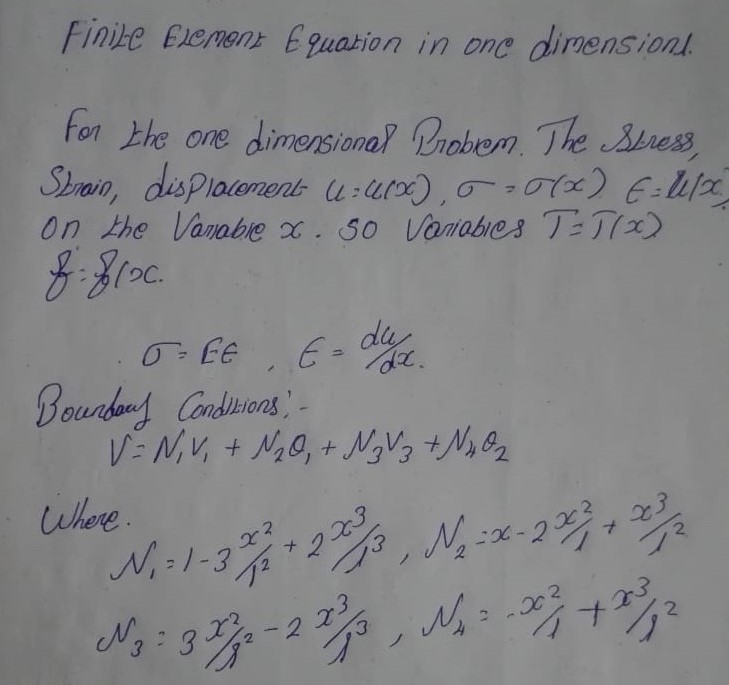 Finite Element Equation in one dimensions.
For the one dimensional Problem. The Stress,
Strain, displacement u=u(x), σ=σ(x) ϵ=u(x)
on the Variable x. So Variables T=T(x)
=(x.
σ=Eϵ, ϵ=du/dx.
Boundary Conditions:-
V=N₁V₁ + N₂θ₁ + N₃V₃ + N₄θ₂
Where.
N₁=1-3x²/l² + 2x³/l³, N₂=x-2x²/l + x³/l²
N₃=3x²/l² - 2x³/l³, N₄=-x²/l + x³/l²